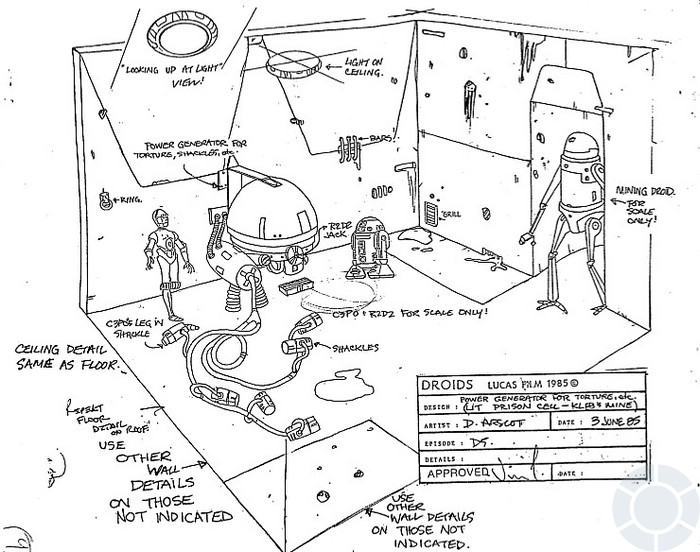 "LOOKING UP AT LIGHT"
VIEW!
LIGHT ON
CEILING.
POWER GENERATOR FOR
TORTURE, SHACKLES, etc.
BARS!
RING.
R2D2
JACK
GRILL
MINING DROID.
FOR
SCALE
ONLY!
C3PO'S LEG IN
SHACKLE
C3PO + R2D2 FOR SCALE ONLY!
SHACKLES
CEILING DETAIL
SAME AS FLOOR.
REPEAT
FLOOR
DETAIL
ON ROOF.
USE
OTHER
WALL
DETAILS
ON THOSE
NOT INDICATED
USE
OTHER
WALL DETAILS
ON THOSE NOT
INDICATED.
DROIDS LUCAS FILM 1985 ©
DESIGN: POWER GENERATOR FOR TORTURE, etc.
(LIT PRISON CELL - KLEB'S MINE)
ARTIST: D. ARSCOT DATE: 3 JUNE 85
EPISODE: D5.
DETAILS:
APPROVED DATE: